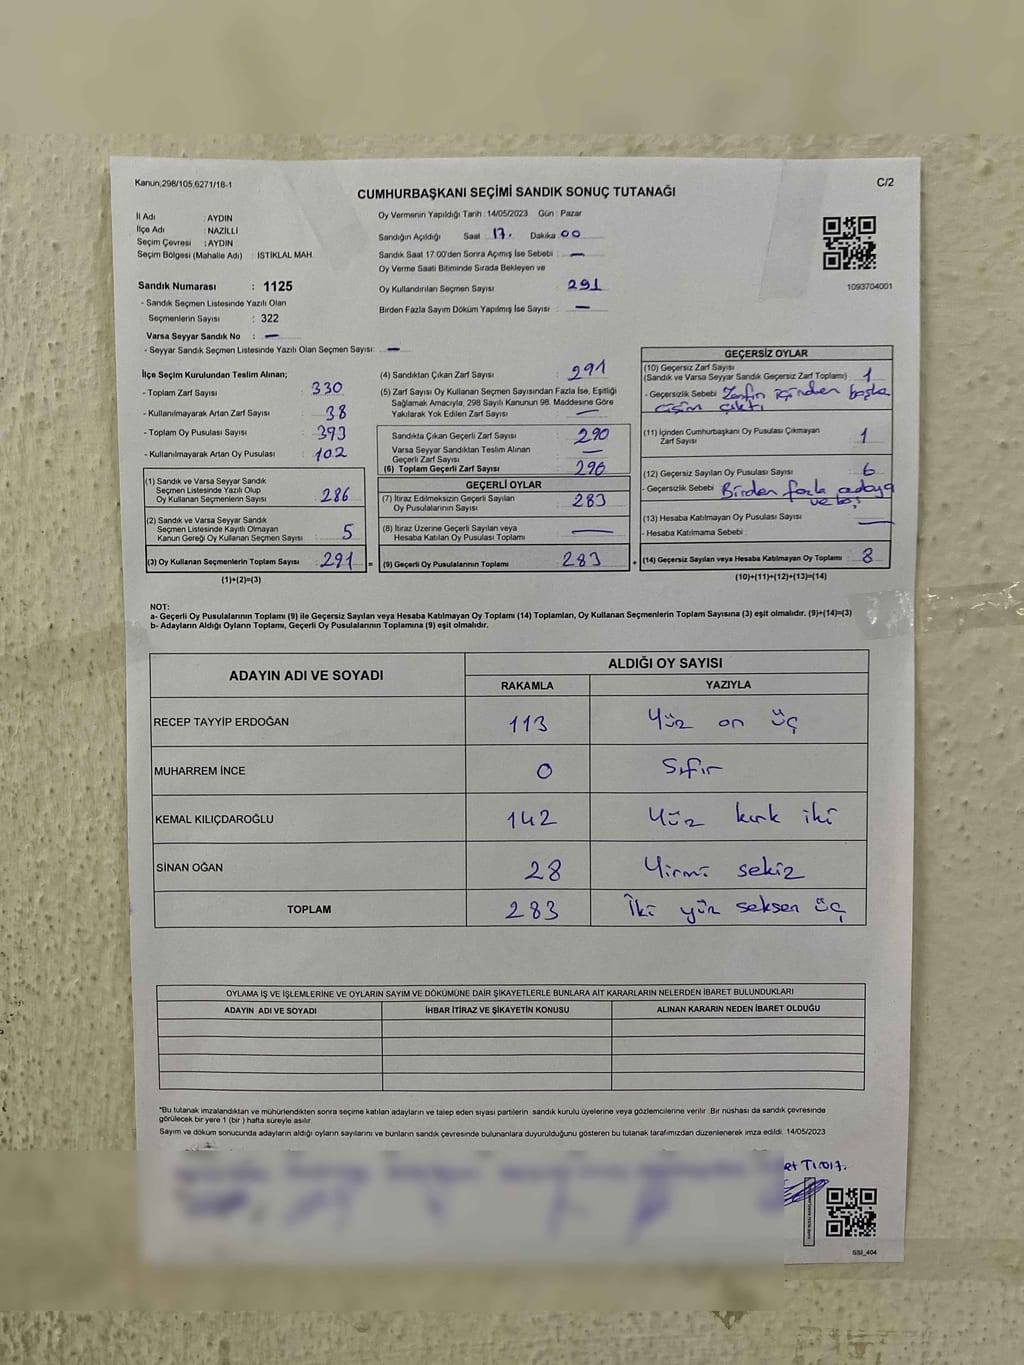 Kanun;298/105,6271/18-1
C/2
CUMHURBAŞKANI SEÇİMİ SANDIK SONUÇ TUTANAĞI
İl Adı : AYDIN
İlçe Adı : NAZİLLİ
Seçim Çevresi : AYDIN
Seçim Bölgesi (Mahalle Adı) İSTİKLAL MAH.
Sandık Numarası : 1125
- Sandık Seçmen Listesinde Yazılı Olan
Seçmenlerin Sayısı : 322
Varsa Seyyar Sandık No : —
- Seyyar Sandık Seçmen Listesinde Yazılı Olan Seçmen Sayısı: —
Oy Vermenin Yapıldığı Tarih : 14/05/2023 Gün : Pazar
Sandığın Açıldığı Saat 17. Dakika 00
Sandık Saat 17:00'den Sonra Açımış İse Sebebi : —
Oy Verme Saati Bitiminde Sırada Bekleyen ve
Oy Kullandırılan Seçmen Sayısı : 291
Birden Fazla Sayım Döküm Yapılmış İse Sayısı : —
1093704001
İlçe Seçim Kurulundan Teslim Alınan;
- Toplam Zarf Sayısı : 330
- Kullanılmayarak Artan Zarf Sayısı : 38
- Toplam Oy Pusulası Sayısı : 393
- Kullanılmayarak Artan Oy Pusulası : 102
(1) Sandık ve Varsa Seyyar Sandık
Seçmen Listesinde Yazılı Olup
Oy Kullanan Seçmenlerin Sayısı : 286
(2) Sandık ve Varsa Seyyar Sandık
Seçmen Listesinde Kayıtlı Olmayan
Kanun Gereği Oy Kullanan Seçmen Sayısı : 5
(3) Oy Kullanan Seçmenlerin Toplam Sayısı : 291 =
(1)+(2)=(3)
(4) Sandıktan Çıkan Zarf Sayısı : 291
(5) Zarf Sayısı Oy Kullanan Seçmen Sayısından Fazla İse, Eşitliği
Sağlamak Amacıyla, 298 Sayılı Kanunun 98. Maddesine Göre
Yakılarak Yok Edilen Zarf Sayısı : —
Sandıkta Çıkan Geçerli Zarf Sayısı : 290
Varsa Seyyar Sandıktan Teslim Alınan
Geçerli Zarf Sayısı : —
(6) Toplam Geçerli Zarf Sayısı : 290
GEÇERLİ OYLAR
(7) İtiraz Edilmeksizin Geçerli Sayılan
Oy Pusulalarının Sayısı : 283
(8) İtiraz Üzerine Geçerli Sayılan veya
Hesaba Katılan Oy Pusulası Toplamı : —
(9) Geçerli Oy Pusulalarının Toplamı : 283 +
GEÇERSİZ OYLAR
(10) Geçersiz Zarf Sayısı
(Sandık ve Varsa Seyyar Sandık Geçersiz Zarf Toplamı) : 1
- Geçersizlik Sebebi : Zarfın içinden başka
cisim çıktı
(11) İçinden Cumhurbaşkanı Oy Pusulası Çıkmayan
Zarf Sayısı : 1
(12) Geçersiz Sayılan Oy Pusulası Sayısı : 6
- Geçersizlik Sebebi : Birden fazla adaya
ve boş
(13) Hesaba Katılmayan Oy Pusulası Sayısı : —
- Hesaba Katılmama Sebebi :
(14) Geçersiz Sayılan veya Hesaba Katılmayan Oy Toplamı : 8
(10)+(11)+(12)+(13)=(14)
NOT:
a- Geçerli Oy Pusulalarının Toplamı (9) ile Geçersiz Sayılan veya Hesaba Katılmayan Oy Toplamı (14) Toplamları, Oy Kullanan Seçmenlerin Toplam Sayısına (3) eşit olmalıdır. (9)+(14)=(3)
b- Adayların Aldığı Oyların Toplamı, Geçerli Oy Pusulalarının Toplamına (9) eşit olmalıdır.
ADAYIN ADI VE SOYADI ALDIĞI OY SAYISI
RAKAMLA YAZIYLA
RECEP TAYYİP ERDOĞAN 113 Yüz on üç
MUHARREM İNCE 0 Sıfır
KEMAL KILIÇDAROĞLU 142 Yüz kırk iki
SİNAN OĞAN 28 Yirmi sekiz
TOPLAM 283 İki yüz seksen üç
OYLAMA İŞ VE İŞLEMLERİNE VE OYLARIN SAYIM VE DÖKÜMÜNE DAİR ŞİKAYETLERLE BUNLARA AİT KARARLARIN NELERDEN İBARET BULUNDUKLARI
ADAYIN ADI VE SOYADI İHBAR İTİRAZ VE ŞİKAYETİN KONUSU ALINAN KARARIN NEDEN İBARET OLDUĞU
*Bu tutanak imzalandıktan ve mühürlendikten sonra seçime katılan adayların ve talep eden siyasi partilerin sandık kurulu üyelerine veya gözlemcilerine verilir. Bir nüshası da sandık çevresinde
görülecek bir yere 1 (bir ) hafta süreyle asılır.
Sayım ve döküm sonucunda adayların aldığı oyların sayılarını ve bunların sandık çevresinde bulunanlara duyurulduğunu gösteren bu tutanak tarafımızdan düzenlenerek imza edildi. 14/05/2023
SSI_404